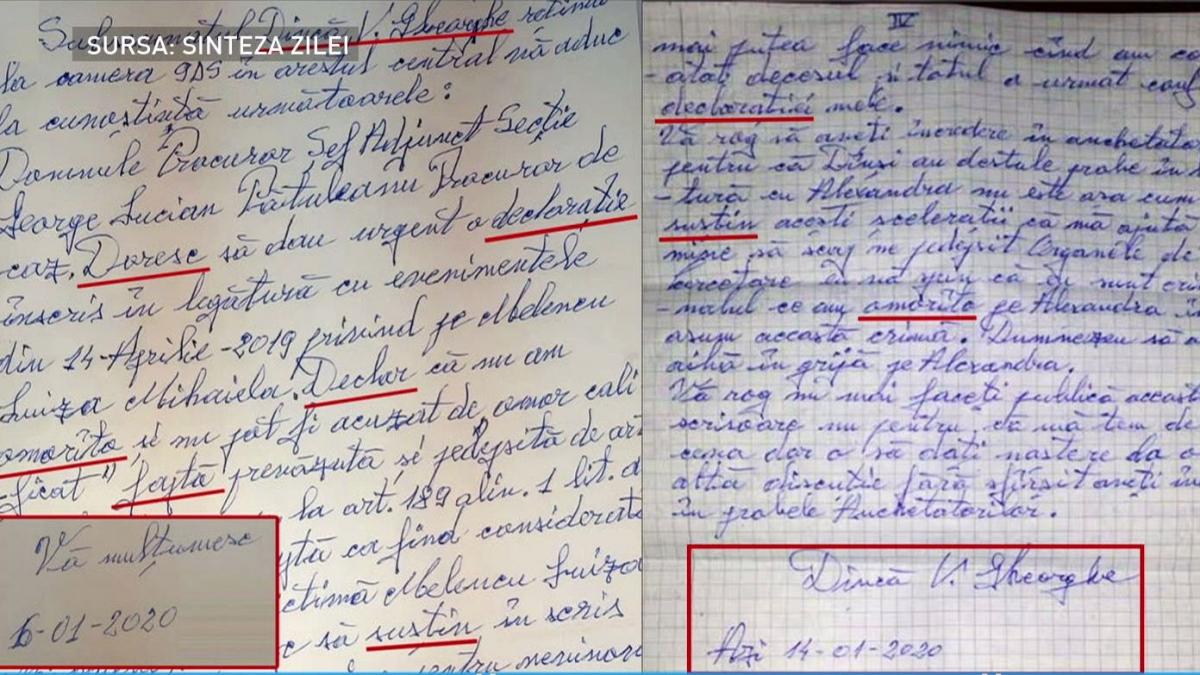 SURSA: SINTEZA ZILEI
Subsemnatul Dincă V. Gheorghe reținut
la camera 9DS în arestul central vă aduc
la cunostintă următoarele:
Domnule Procuror Șef Adjunct Secție
George Lucian Pătuleanu Procuror de
caz. Doresc să dau urgent o declaratie
înscris în legătură cu evenimentele
din 14-Aprilie-2019 privind pe Melencu
Luiza Mihaiela. Declar că nu am
omorîto si nu pot fi acuzat de omor cali
-ficat" faptă prevăzută și pedepsită de art
la art. 189 alin. 1 lit. a
ca fiind considerată
Melencu Luiza
să sustin în scris
pentru
Vă multumesc
6-01-2020
IV
mai putea face nimic cînd am co
-atat decesul si totul a urmat conf
declaratiei mele.
Vă rog să aveti încredere în anchetato
pentru că Dînsi au destule probe în
-tură cu Alexandra nu este asa cum
sustin acesti scelerati că mă ajută
mine să scap ne pedepsit Organele de
cercetare
-malul ce am omorîto pe Alexandra îm
asum această crimă. Dumnezeu să o
aibă în grijă pe Alexandra.
Vă rog nu mai faceti publică aceast
scrisoare nu pentru că mă tem de
ceva dar o să dati nastere la o
altă discutie fără sfîrsit aveti în
în probele Anchetatorilor.
Dincă V. Gheorghe
Azi 14-01-2020